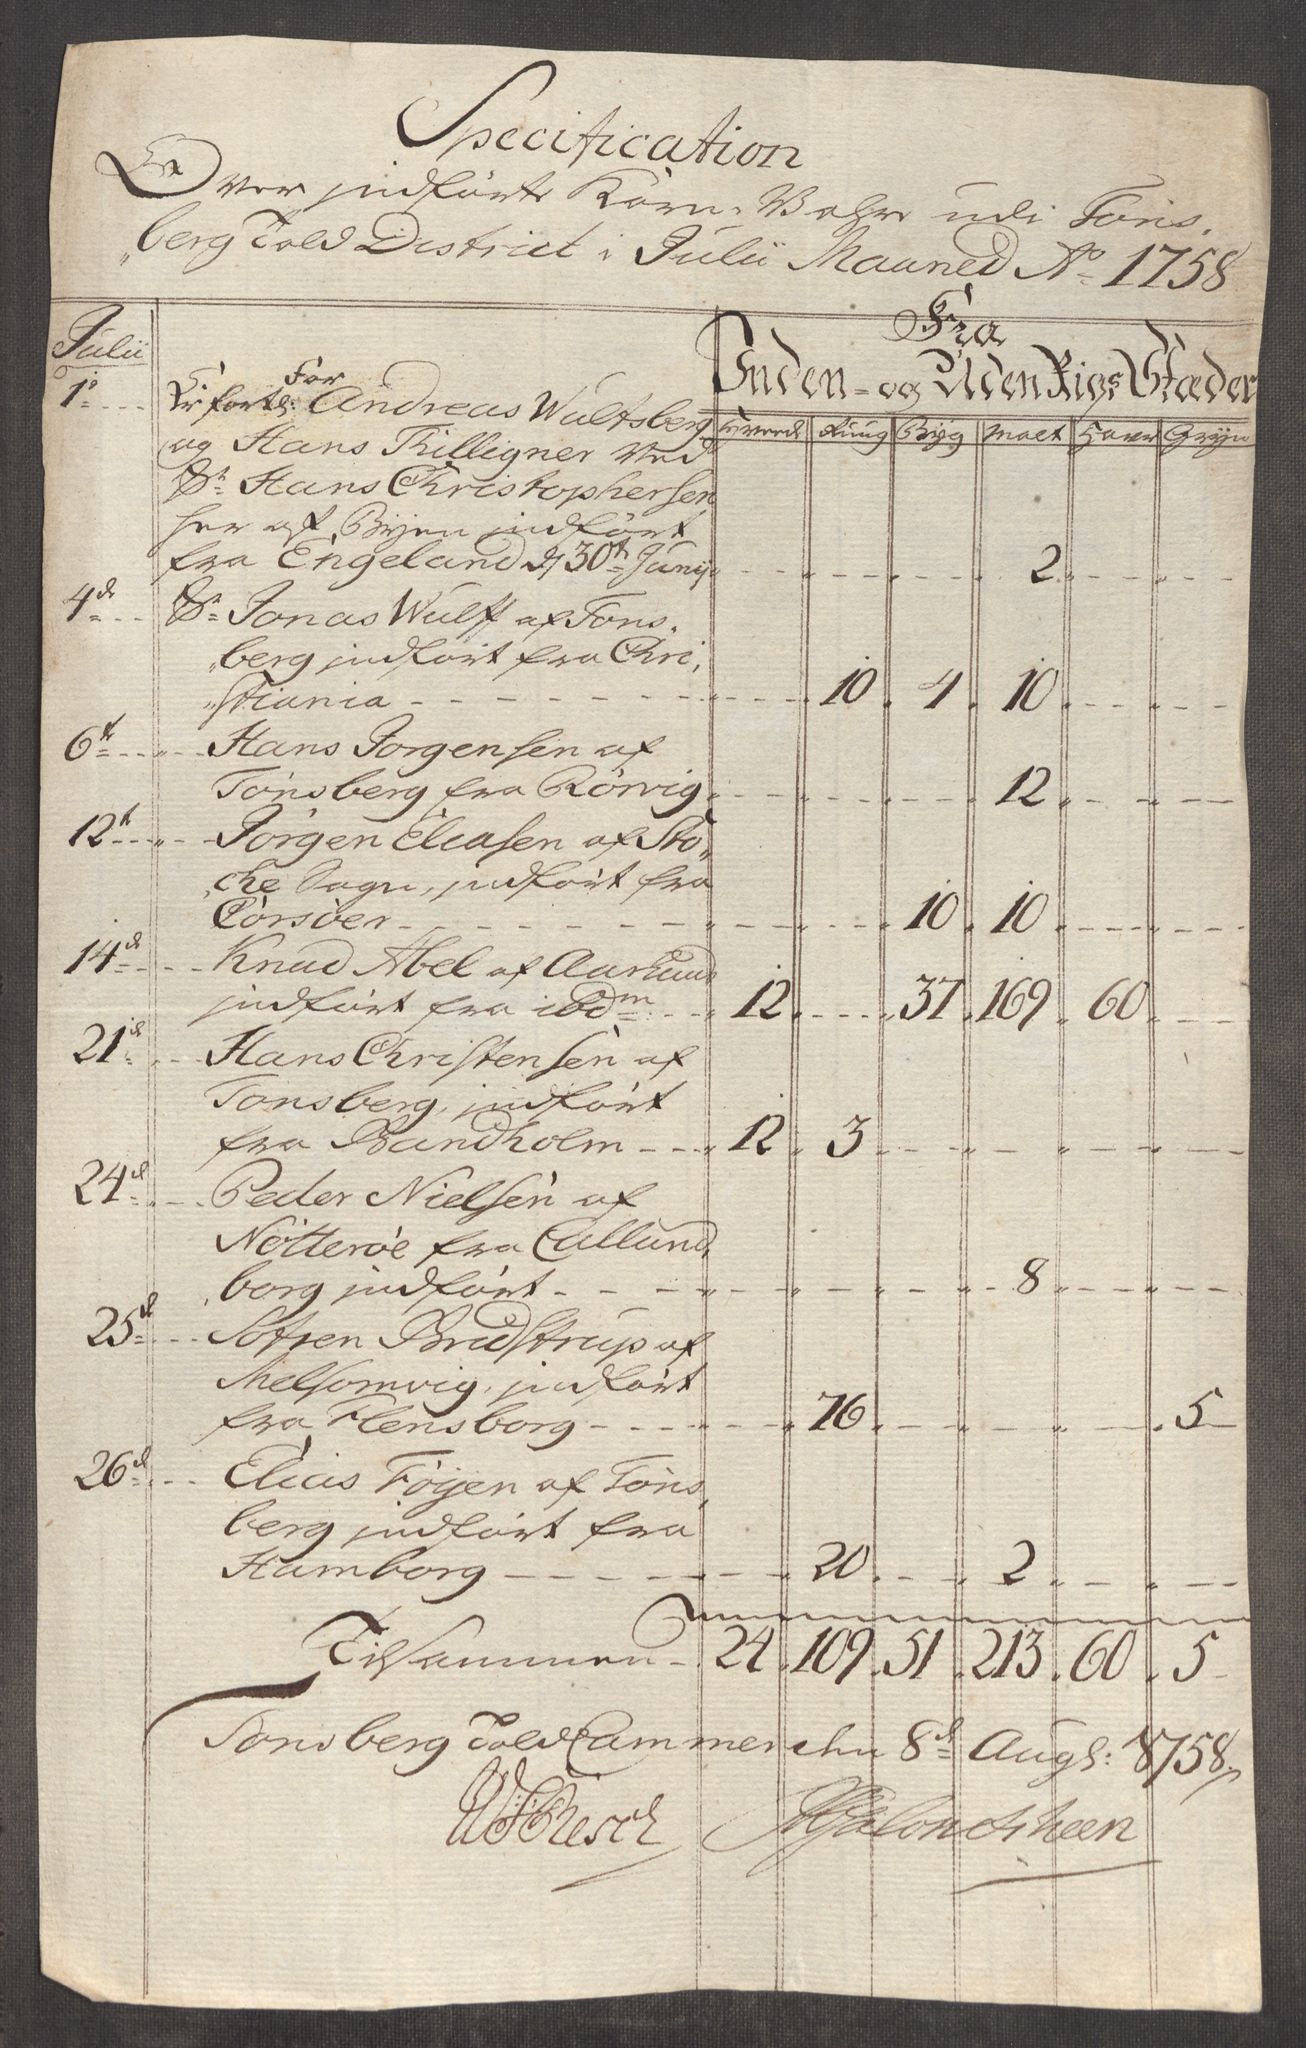 Specification
Over indførte Korn-Vahre udi Töns,
„berg Told District i Julii Maaned Ao 1758
Fra
Julii Inden- og Uden Rigs Stæder
Hveede Rug Byg Malt Havre Gryn
1o For
Andreas Wulfsberg
og Hans Trilligner ved
Sr Hans Christophersen
her af Byen indført
fra Engeland d 30te Junij 2
4de Sr Jonas Wulff af Töns,
„berg indført fra Chri,
„stiania 10 4 10
6te Hans Jørgensen af
Tönsberg fra Rörvig 12
12te Jörgen Eliasen af Sto,
„che Sogn, indført fra
Corsöer 10 10
14de Knud Abel af Aarhuus
indført fra ibdm 12 37 169 60
21de Hans Christensen af
Tonsberg, indført
fra Bandholm 12 3
24de Peder Nielsen af
Nötteröe fra Callund,
„borg indført 8
25de Söfren Bredstrup af
Melsomvig, indført
fra Flensborg 76 5
26de Elias Föyen af Töns,
berg indført fra
Hamborg 20 2
Tilsammen 24 109 51 213 60 5
Tonsberg Told Cammer den 8de Augs: 1758